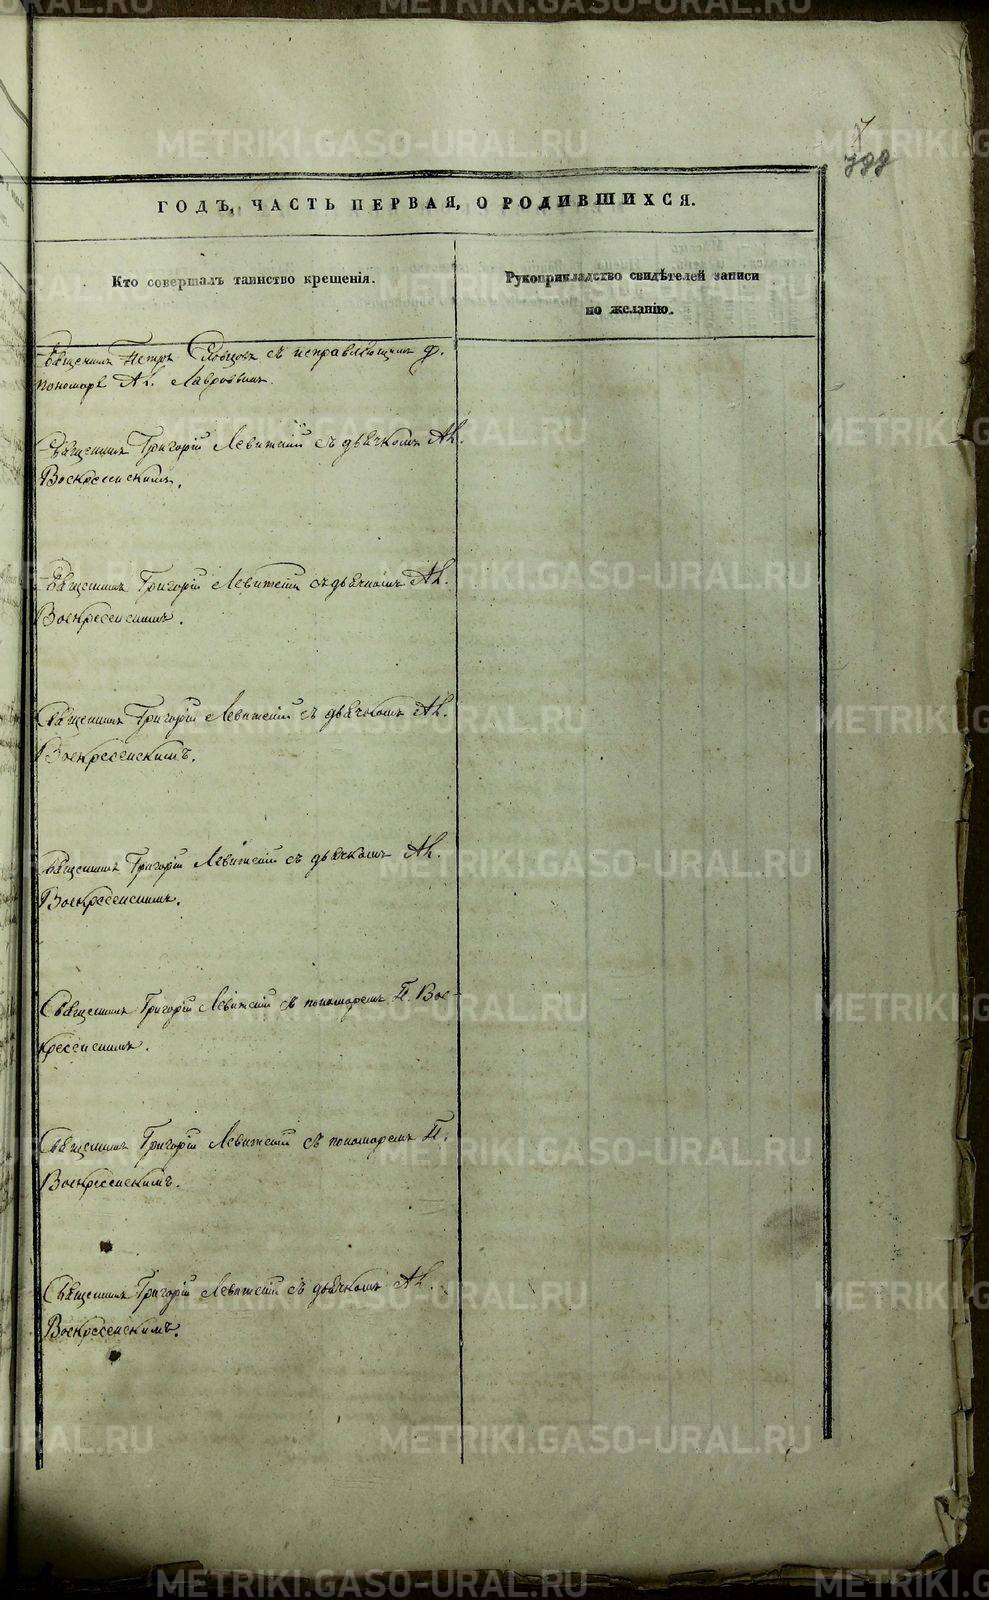 7
ГОДЪ, ЧАСТЬ ПЕРВАЯ, О РОДИВШИХСЯ.
Кто совершалъ таинство крещенія.
Рукоприкладство свидѣтелей записи
по желанію.
Священникъ Петръ Словцовъ съ исправляющимъ д.
пономаря Ал. Лавровымъ.
Священникъ Григорій Левитскій съ дьячкомъ Ал.
Воскресенскимъ.
Священникъ Григорій Левитскій съ дьячкомъ Ал.
Воскресенскимъ.
Священникъ Григорій Левитскій съ дьячкомъ Ал.
Воскресенскимъ.
Священникъ Григорій Левитскій съ дьячкомъ Ал.
Воскресенскимъ.
Священникъ Григорій Левитскій съ пономаремъ П. Вос-
кресенскимъ.
Священникъ Григорій Левитскій съ пономаремъ П.
Воскресенскимъ.
Священникъ Григорій Левитскій съ дьячкомъ Ал.
Воскресенскимъ.
METRIKI.GASO-URAL.RU